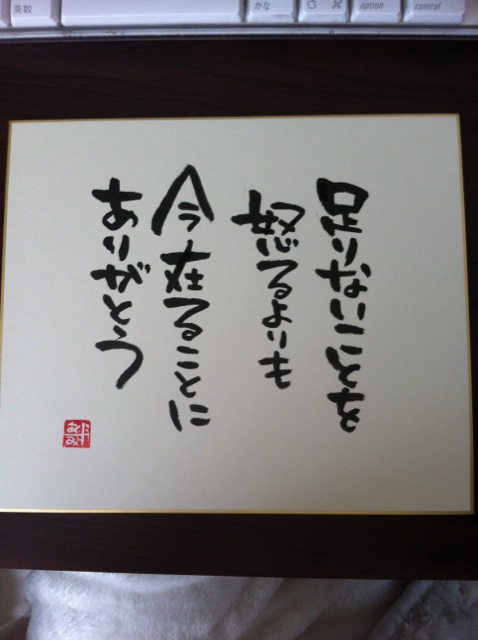 英数
かな
⌘
option
control
足りないことを
怒るよりも
今在ることに
ありがとう